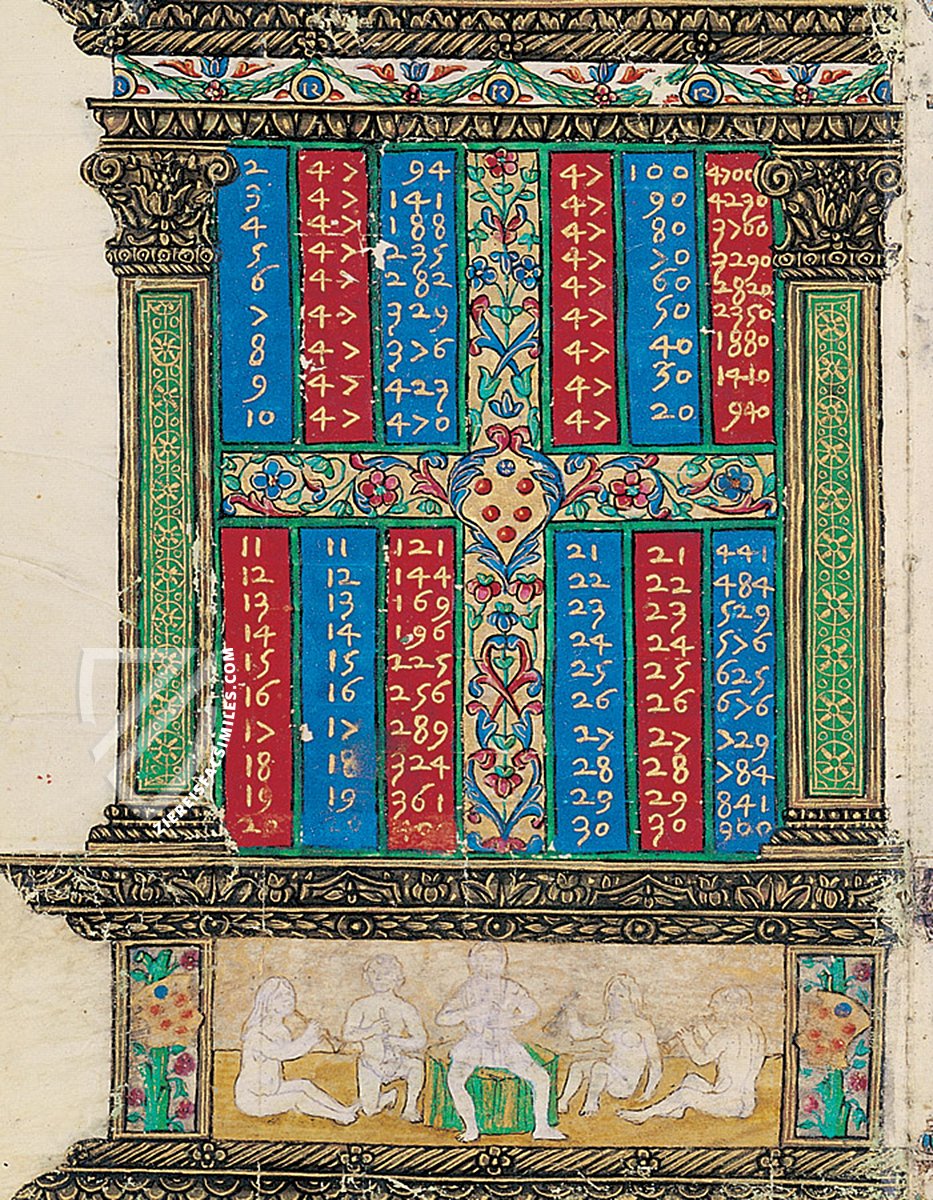 2 47 94
3 47 141
4 47 188
5 47 235
6 47 282
7 47 329
8 47 376
9 47 423
10 47 470
47 100 4700
47 90 4230
47 80 3760
47 70 3290
47 60 2820
47 50 2350
47 40 1880
47 30 1410
47 20 940
11 11 121
12 12 144
13 13 169
14 14 196
15 15 225
16 16 256
17 17 289
18 18 324
19 19 361
20 20
21 21 441
22 22 484
23 23 529
24 24 576
25 25 625
26 26 676
27 27 729
28 28 784
29 29 841
30 30 900
ZIEREISFACSIMILES.COM